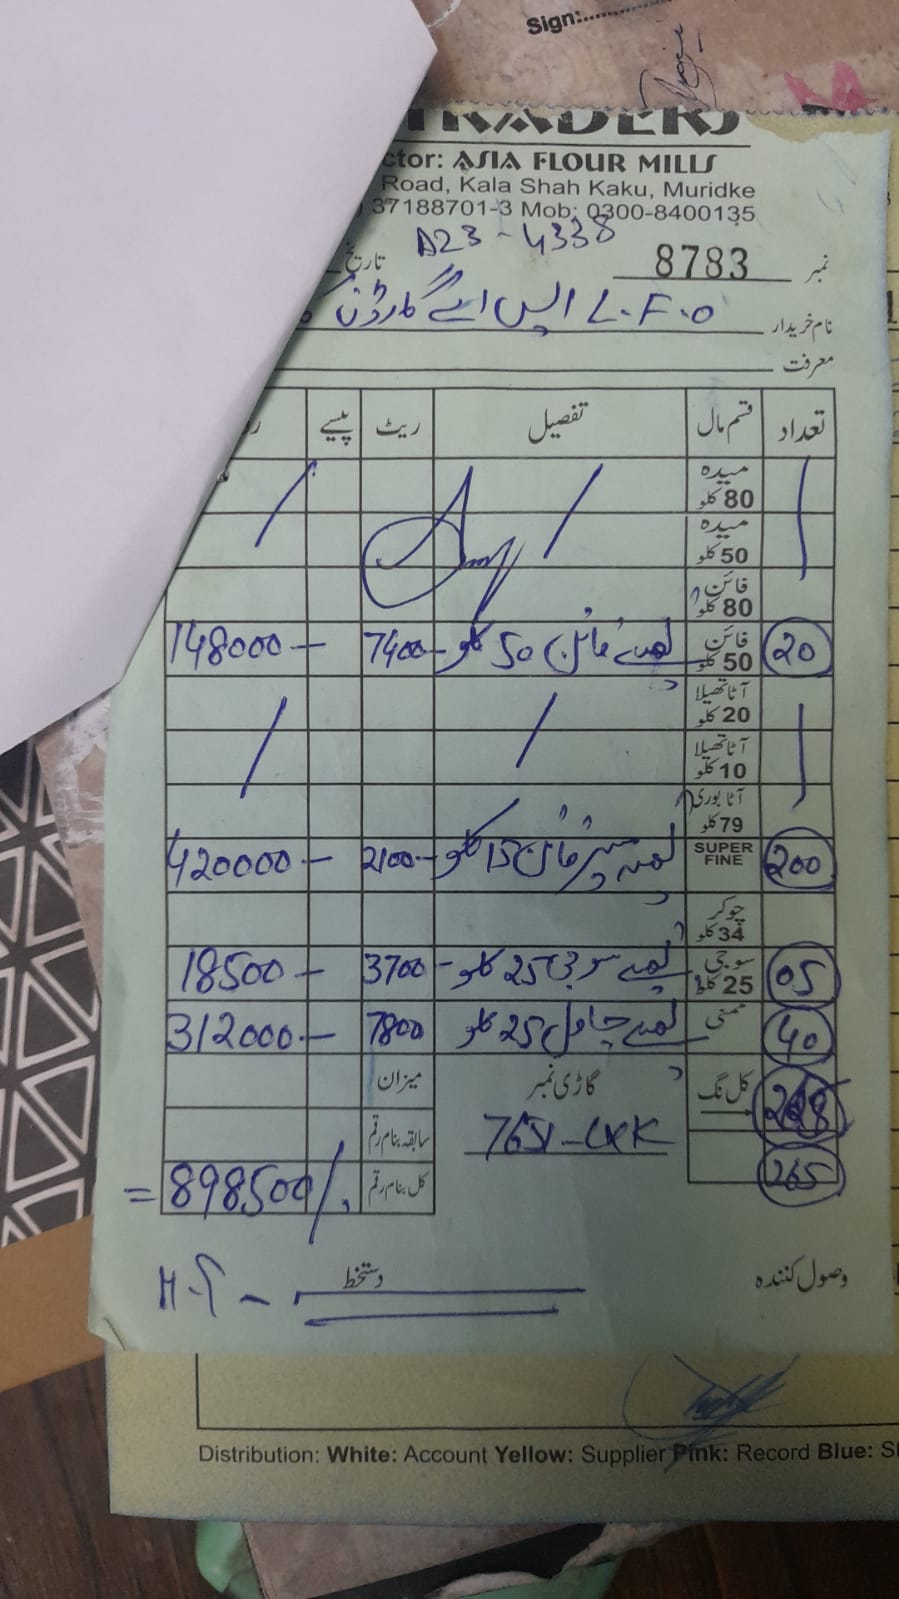 Sign:
TRADERS
ctor: ASIA FLOUR MILLS
Road, Kala Shah Kaku, Muridke
37188701-3 Mob: 0300-8400135
A23-4338
نمبر 8783 تاریخ
نام خریدار L.F.O ایس اے گارڈن
معرفت
تعداد قسم مال تفصیل ریٹ پیسے
میدہ 80 کلو
میدہ 50 کلو
فائن 80 کلو
20 فائن 50 کلو فائن 50 کلو 7400- 148000-
آٹا تھیلا 20 کلو
آٹا تھیلا 10 کلو
آٹا بوری 79 کلو
200 SUPER FINE سپر فائن 15 کلو 2100- 420000-
چوکر 34 کلو
05 سوجی 25 کلو سوجی 25 کلو 3700- 18500-
40 چاول 25 کلو 7800 312000-
کل نگ گاڑی نمبر میزان
سابقہ بنام رقم
265 کل بنام رقم =898500/.
وصول کنندہ دستخط
Distribution: White: Account Yellow: Supplier Pink: Record Blue: